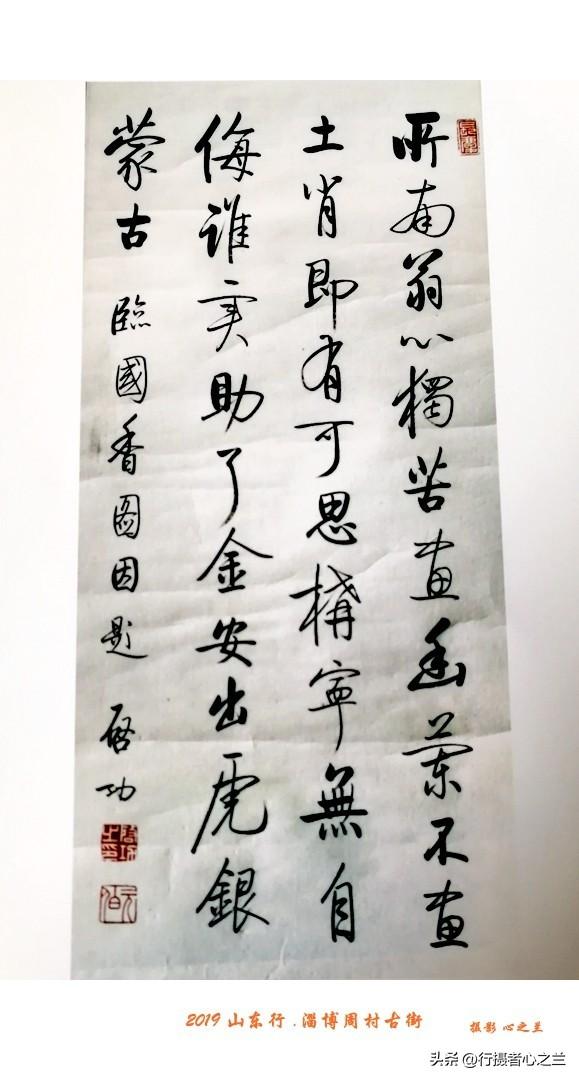 所南翁心獨苦画幽蘭不画
土肖即有可思構寧無自
侮誰实助了金安出虎銀
蒙古 臨國香圖因題 啓功
元白
2019 山东行 .淄博周村古街
摄影 心之兰
头条 @行摄者心之兰